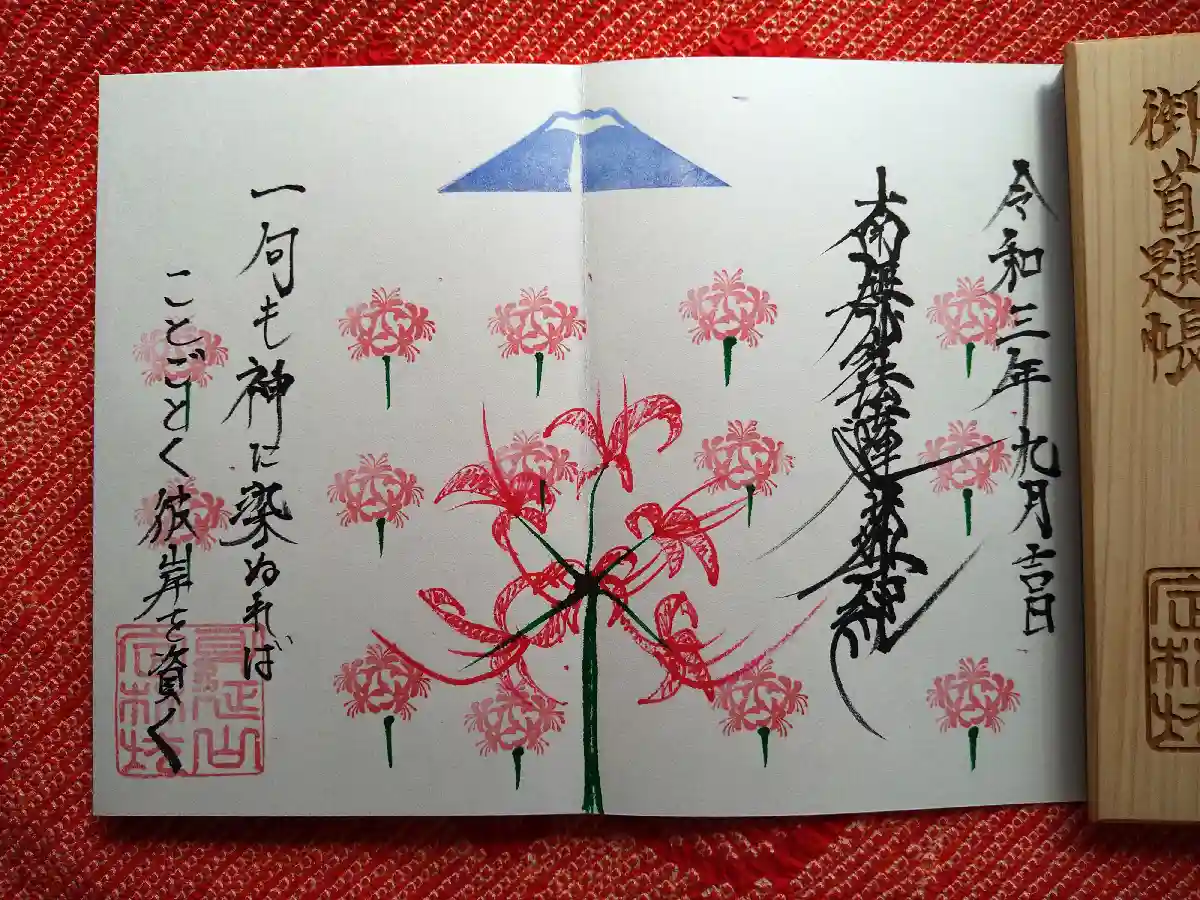 御首題帳
定林坊
令和三年九月吉日
南無妙法蓮華経
一句も神に染ぬれば
ことごとく彼岸を資く
身延山
定林坊